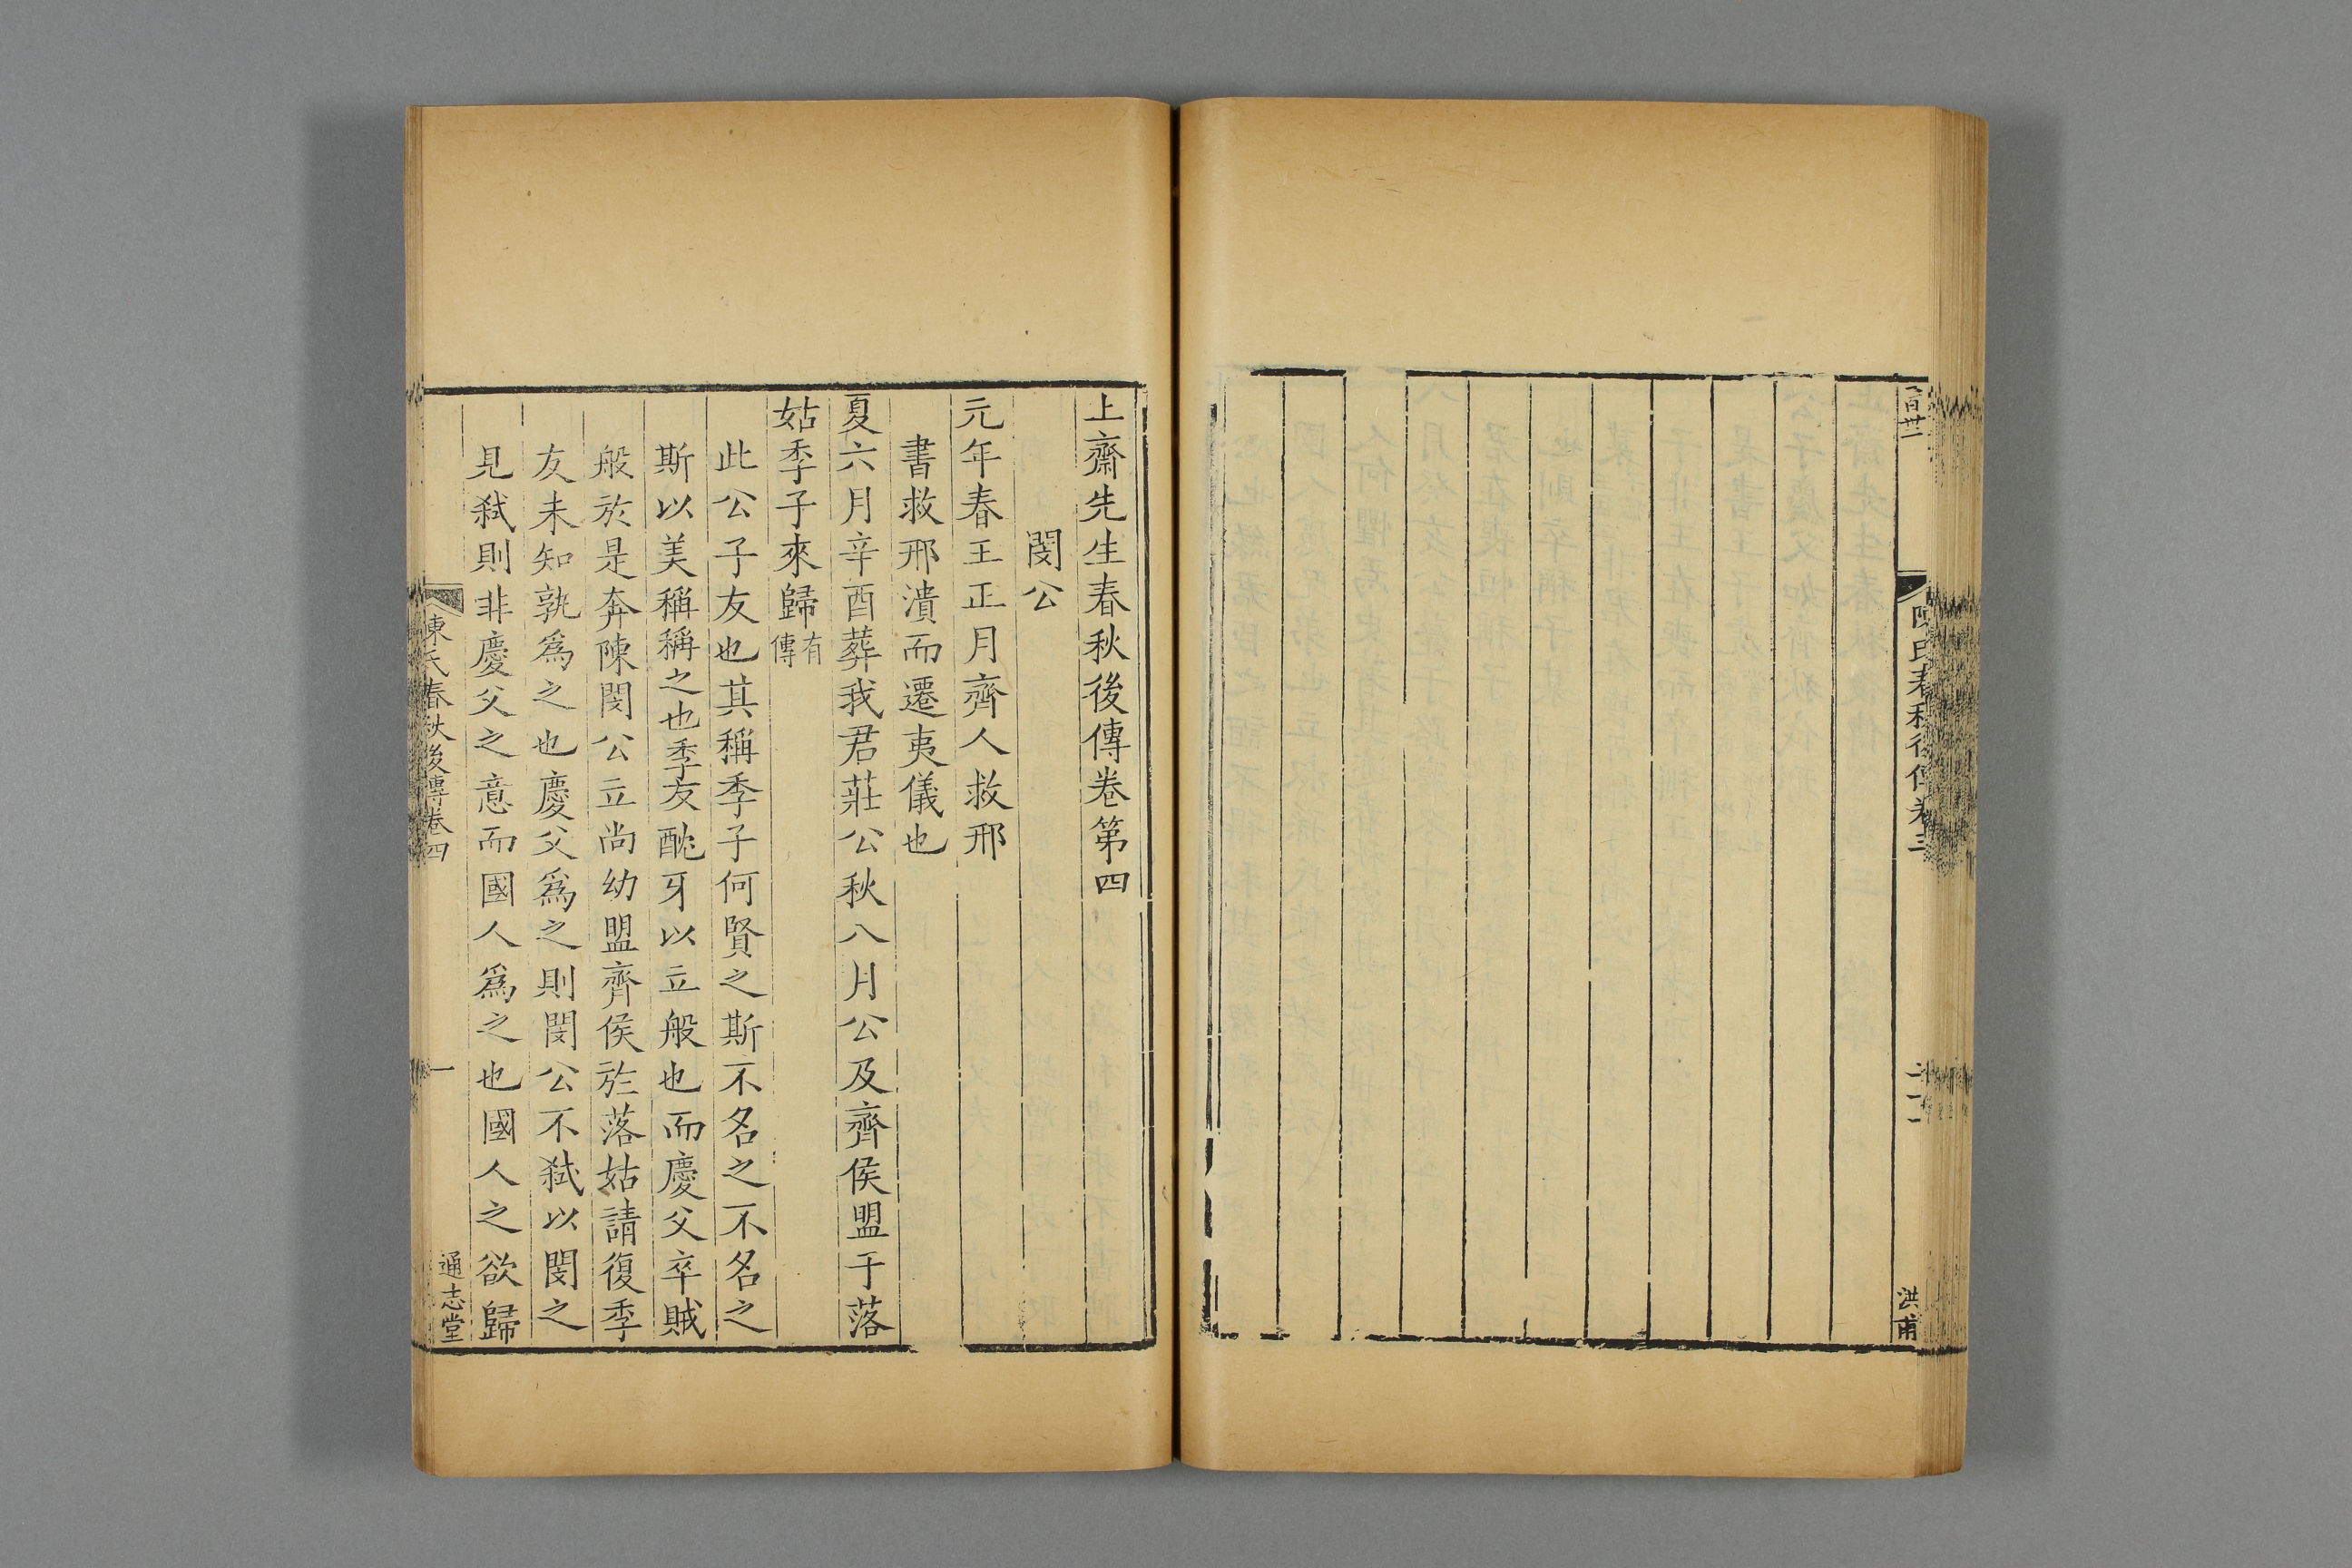 陳氏春秋後傳卷三
洪甫
上齋先生春秋後傳卷第四
閔公
元年春王正月齊人救邢
書救邢潰而遷夷儀也
夏六月辛酉葬我君莊公秋八月公及齊侯盟于落
姑季子來歸有傳
此公子友也其稱季子何賢之斯不名之不名之
斯以美稱稱之也季友酖牙以立般也而慶父卒賊
般於是奔陳閔公立尚幼盟齊侯於落姑請復季
友未知孰爲之也慶父爲之則閔公不弑以閔之
見弑則非慶父之意而國人爲之也國人之欲歸
陳氏春秋後傳卷四
一
通志堂